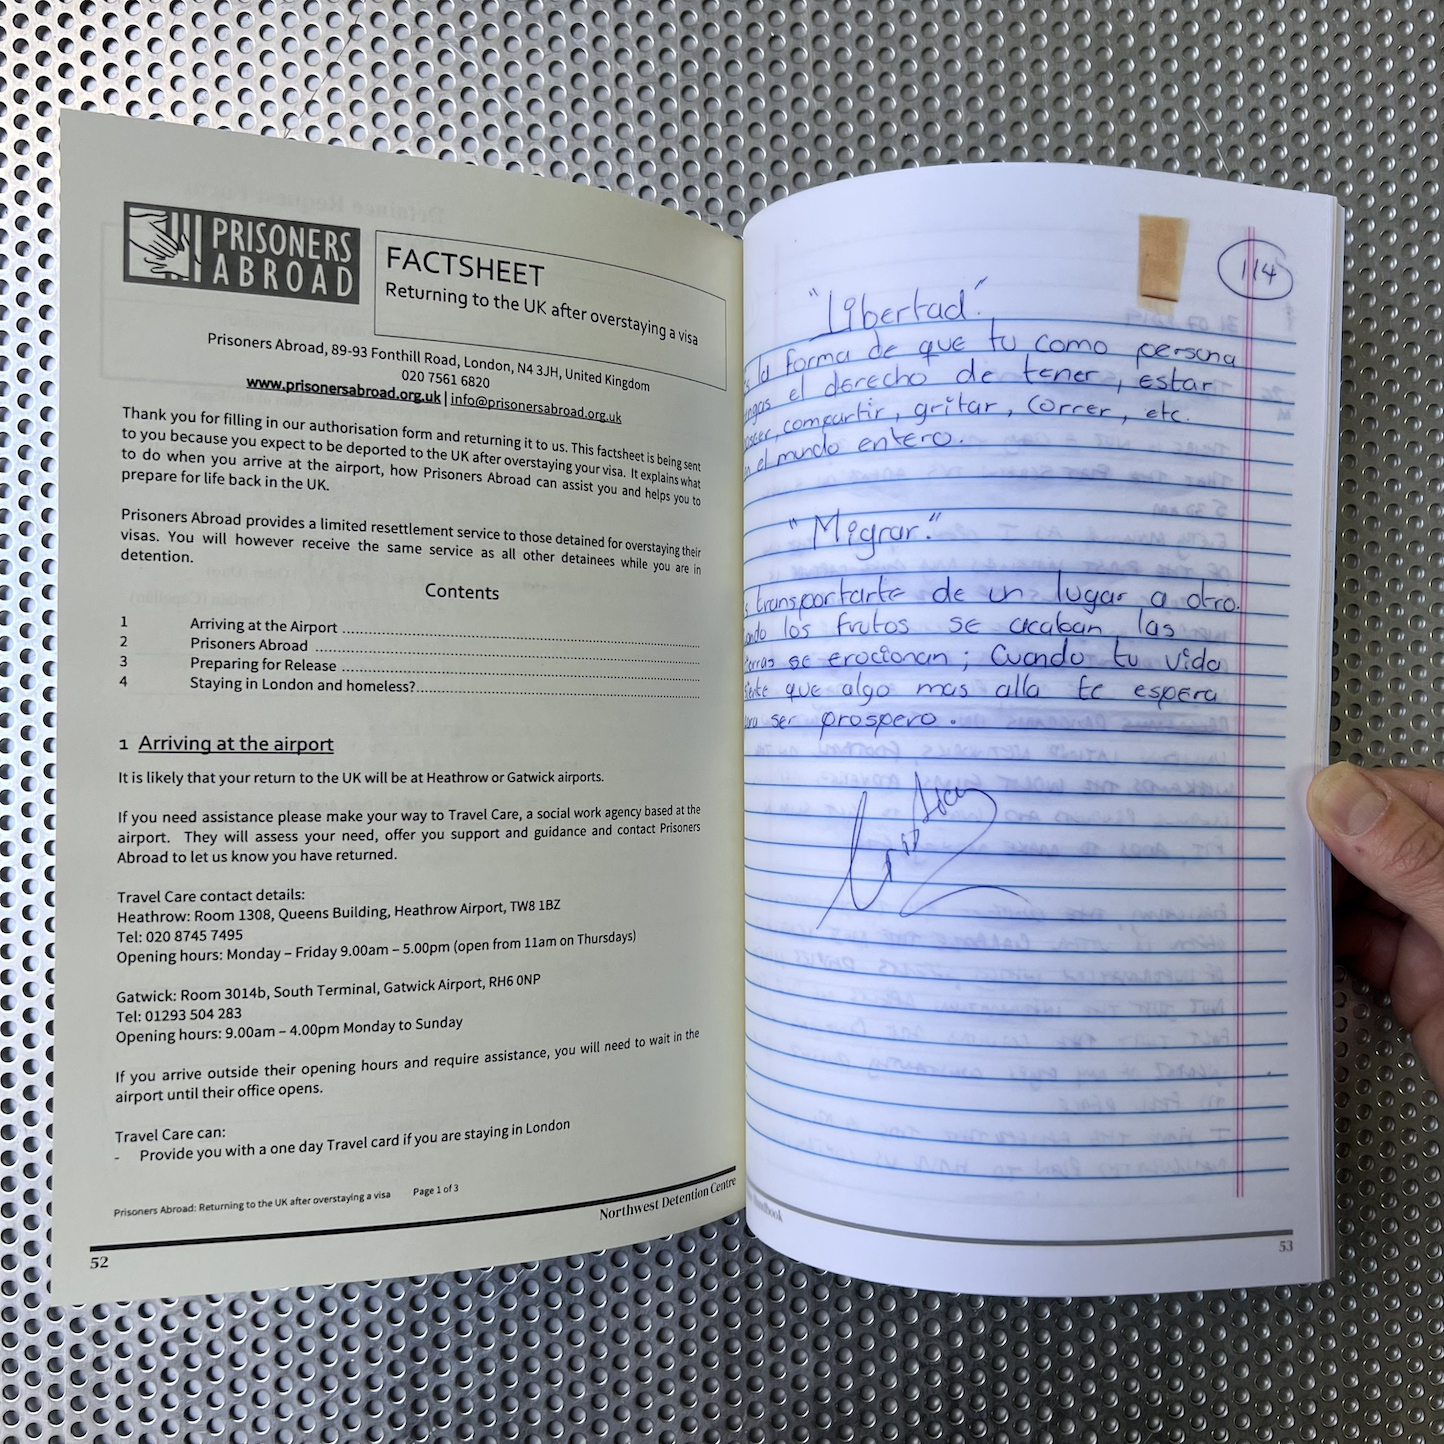 PRISONERS
ABROAD
FACTSHEET
Returning to the UK after overstaying a visa
Prisoners Abroad, 89-93 Fonthill Road, London, N4 3JH, United Kingdom
020 7561 6820
www.prisonersabroad.org.uk | info@prisonersabroad.org.uk
Thank you for filling in our authorisation form and returning it to us. This factsheet is being sent
to you because you expect to be deported to the UK after overstaying your visa. It explains what
to do when you arrive at the airport, how Prisoners Abroad can assist you and helps you to
prepare for life back in the UK.
Prisoners Abroad provides a limited resettlement service to those detained for overstaying their
visas. You will however receive the same service as all other detainees while you are in
detention.
Contents
1 Arriving at the Airport
2 Prisoners Abroad
3 Preparing for Release
4 Staying in London and homeless?
1 Arriving at the airport
It is likely that your return to the UK will be at Heathrow or Gatwick airports.
If you need assistance please make your way to Travel Care, a social work agency based at the
airport. They will assess your need, offer you support and guidance and contact Prisoners
Abroad to let us know you have returned.
Travel Care contact details:
Heathrow: Room 1308, Queens Building, Heathrow Airport, TW8 1BZ
Tel: 020 8745 7495
Opening hours: Monday – Friday 9.00am – 5.00pm (open from 11am on Thursdays)
Gatwick: Room 3014b, South Terminal, Gatwick Airport, RH6 0NP
Tel: 01293 504 283
Opening hours: 9.00am – 4.00pm Monday to Sunday
If you arrive outside their opening hours and require assistance, you will need to wait in the
airport until their office opens.
Travel Care can:
- Provide you with a one day Travel card if you are staying in London
Prisoners Abroad: Returning to the UK after overstaying a visa Page 1 of 3
Northwest Detention Centre
52
114
"Libertad"
la forma de que tu como persona
el derecho de tener, estar
compartir, gritar, correr, etc.
el mundo entero.
"Migrar."
transportarte de un lugar a otro.
los frutos se acaban las
se erocionan; Cuando tu vida
que algo mas alla te espera
ser prospero.
Handbook
53